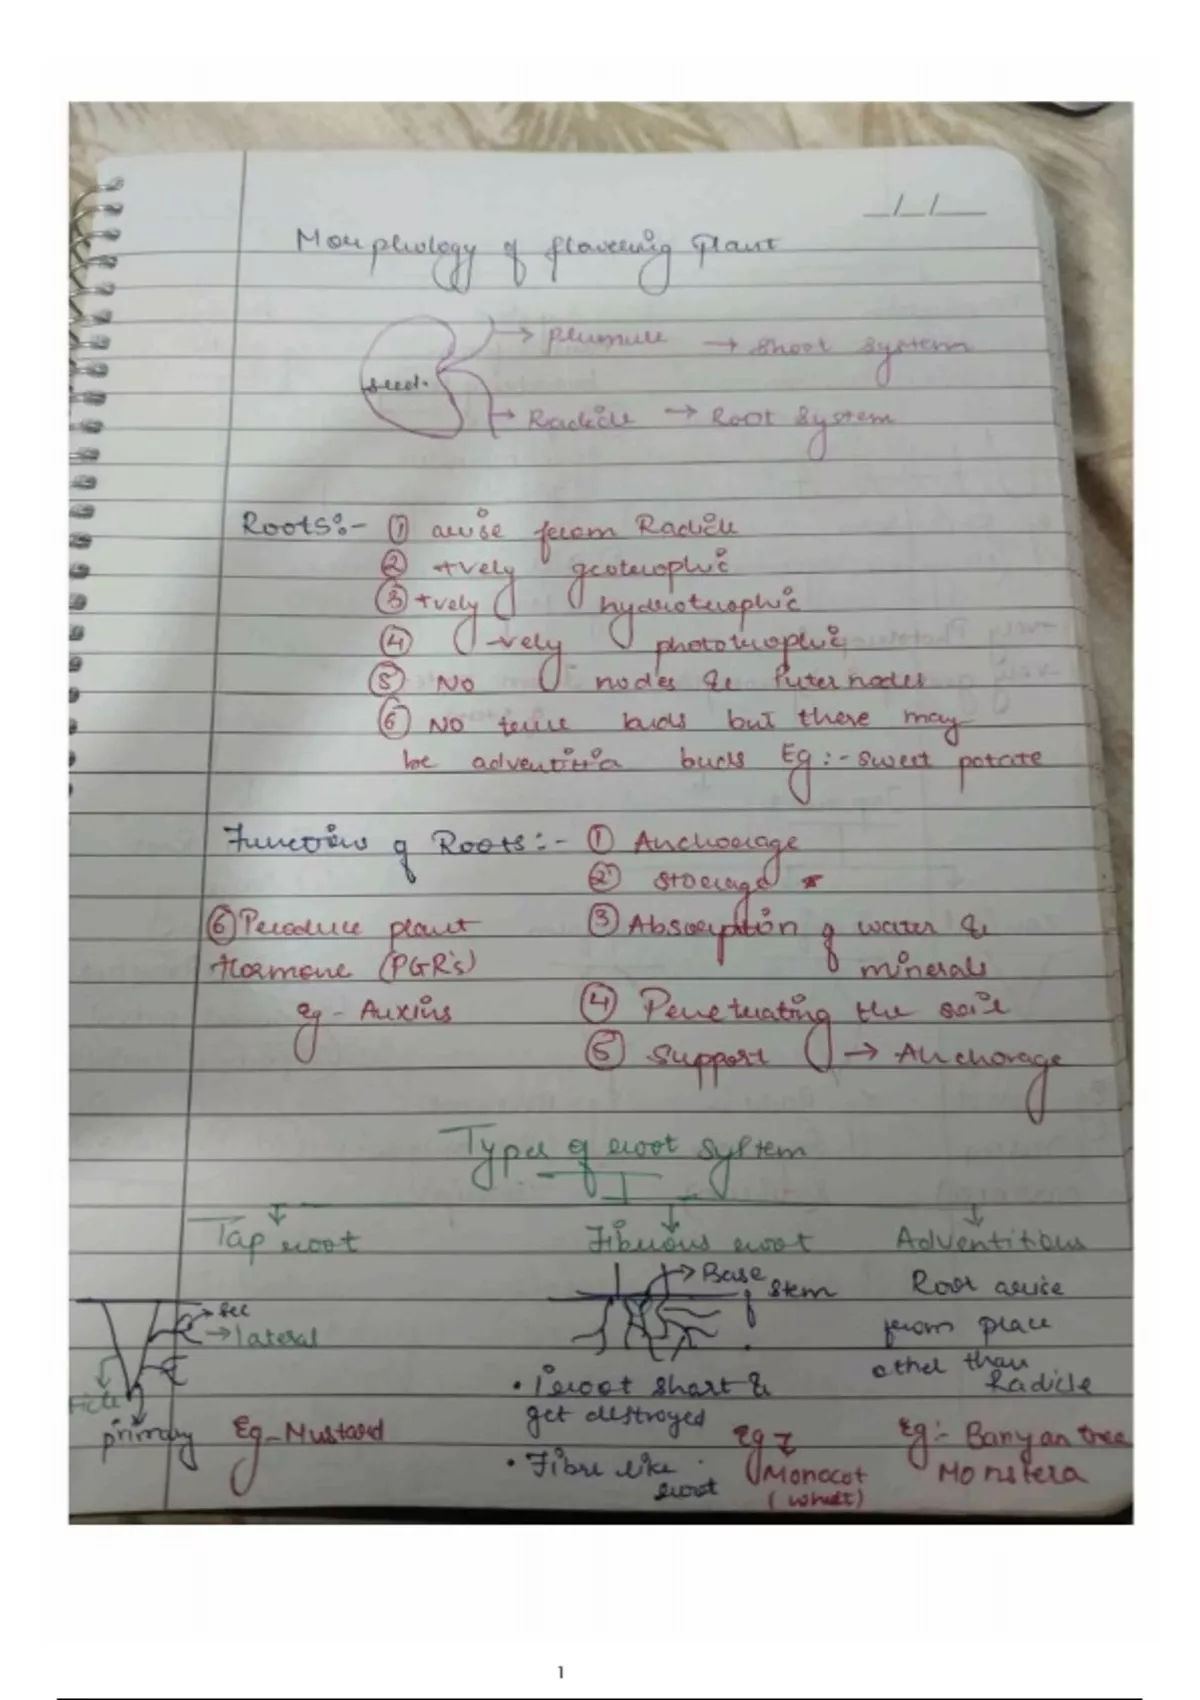 __/__/____
Morphology of flowering Plant
seed.
→ Plumule → Shoot system
→ Radicle → Root system
Roots:- ① arise from Radicle
② +vely geotrophic
③ +vely hydrotrophic
④ -vely phototrophic
⑤ No nodes & Internodes
⑥ No true buds but there may
be adventitia buds Eg:- sweet potate
Functions of Roots:- ① Anchorage
② Storage
③ Absorption of water &
minerals
④ Penetrating the soil
⑤ Support → Anchorage
⑥ Produce plant
Hormone (PGR's)
eg - Auxins
Types of root system
Tap root
→ sec
→ lateral
primary
Eg - Mustard
Fibrous root
→ Base of stem
• 1° root short &
get destroyed
• Fibre like root
Eg
Monocot
(wheat)
Adventitious
Root arise
from place
other than
Radicle
Eg:- Banyan tree
Monstera
1